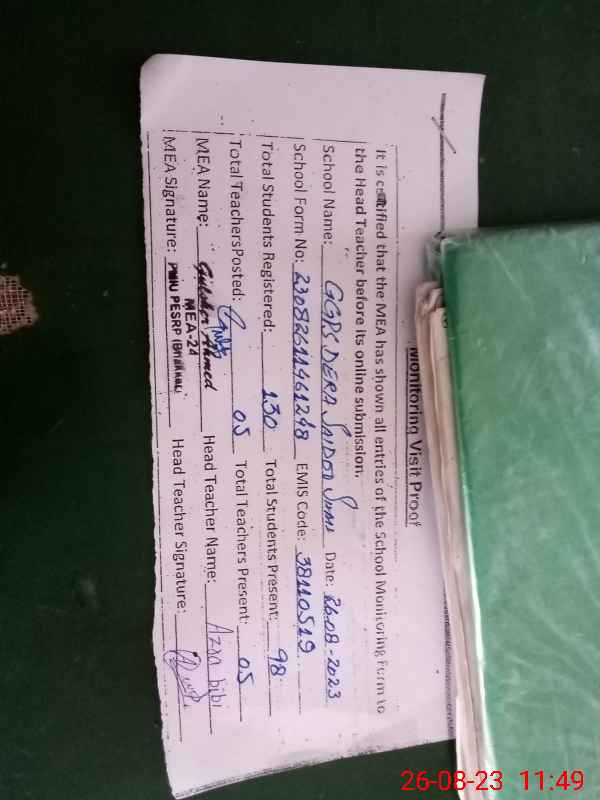 Monitoring Visit Proof
It is certified that the MEA has shown all entries of the School Monitoring Form to
the Head Teacher before its online submission.
School Name: GGPS DERA SAIDOO SHAH Date: 26-08-2023
School Form No: 23082611461248 EMIS Code: 38110519
Total Students Registered: 130 Total Students Present: 98
Total Teachers Posted: 05 Total Teachers Present: 05
MEA Name: Gulsher Ahmed Head Teacher Name: Azra bibi
MEA-24
MEA Signature: PMIU PESRP (Bhakkar) Head Teacher Signature:
26-08-23 11:49